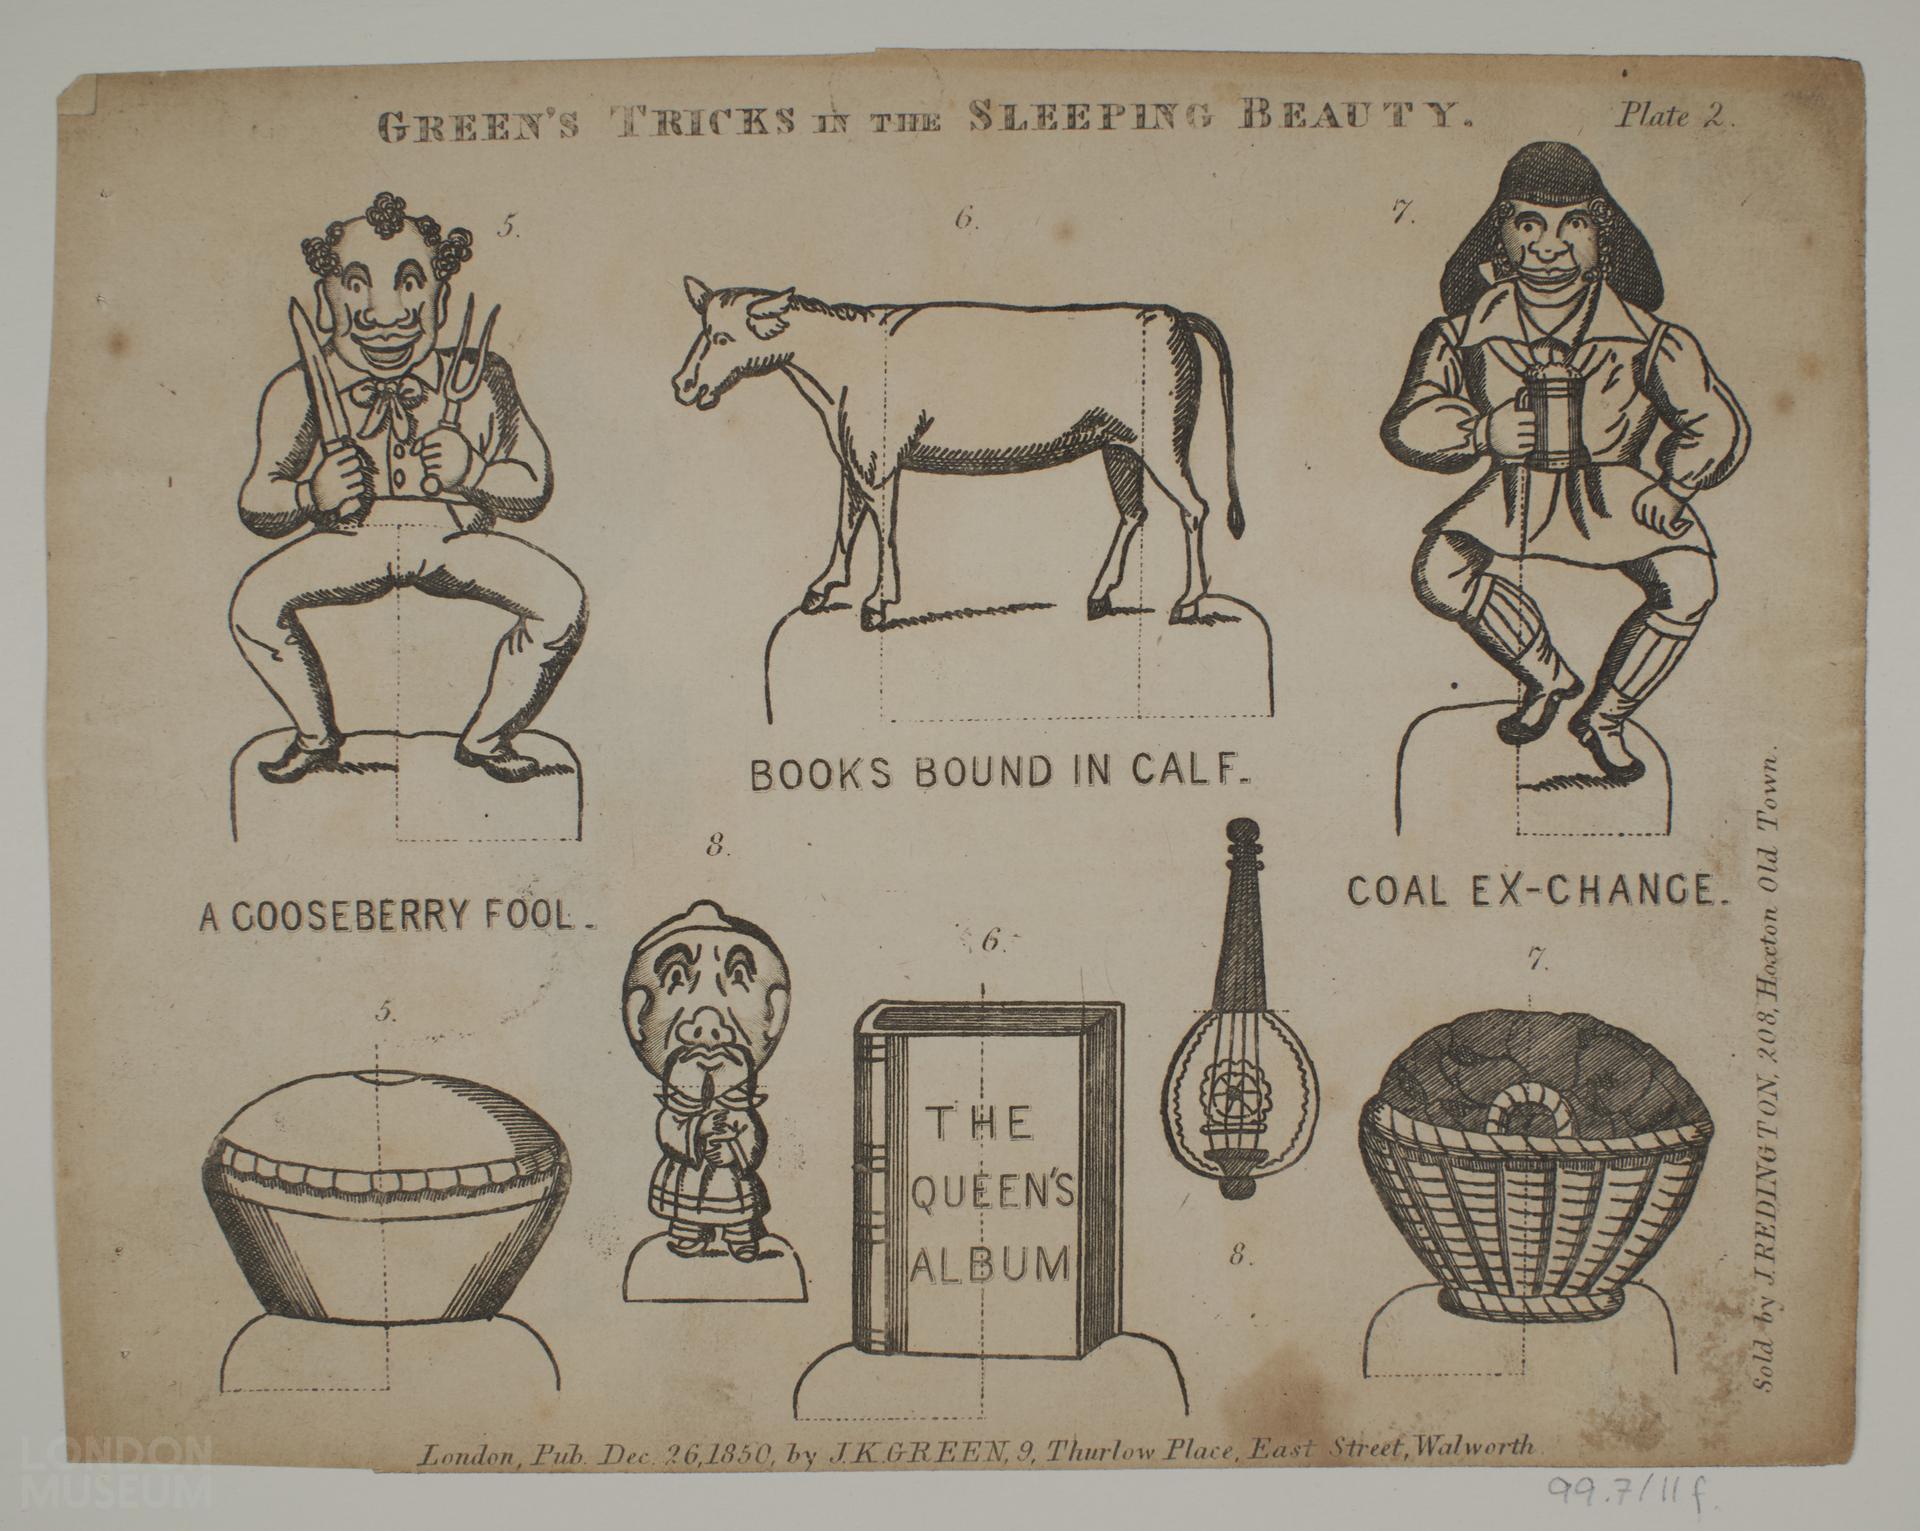 GREEN'S TRICKS IN THE SLEEPING BEAUTY.
Plate 2.
5.
6.
7.
BOOKS BOUND IN CALF.
8.
COAL EX-CHANGE.
A GOOSEBERRY FOOL.
6.
7.
5.
THE
QUEEN'S
ALBUM
8.
Sold by J. REDINGTON, 208, Hoxton Old Town.
London, Pub. Dec. 26, 1850, by J.K. GREEN, 9, Thurlow Place, East Street, Walworth
LONDON
MUSEUM
99.7/11f.